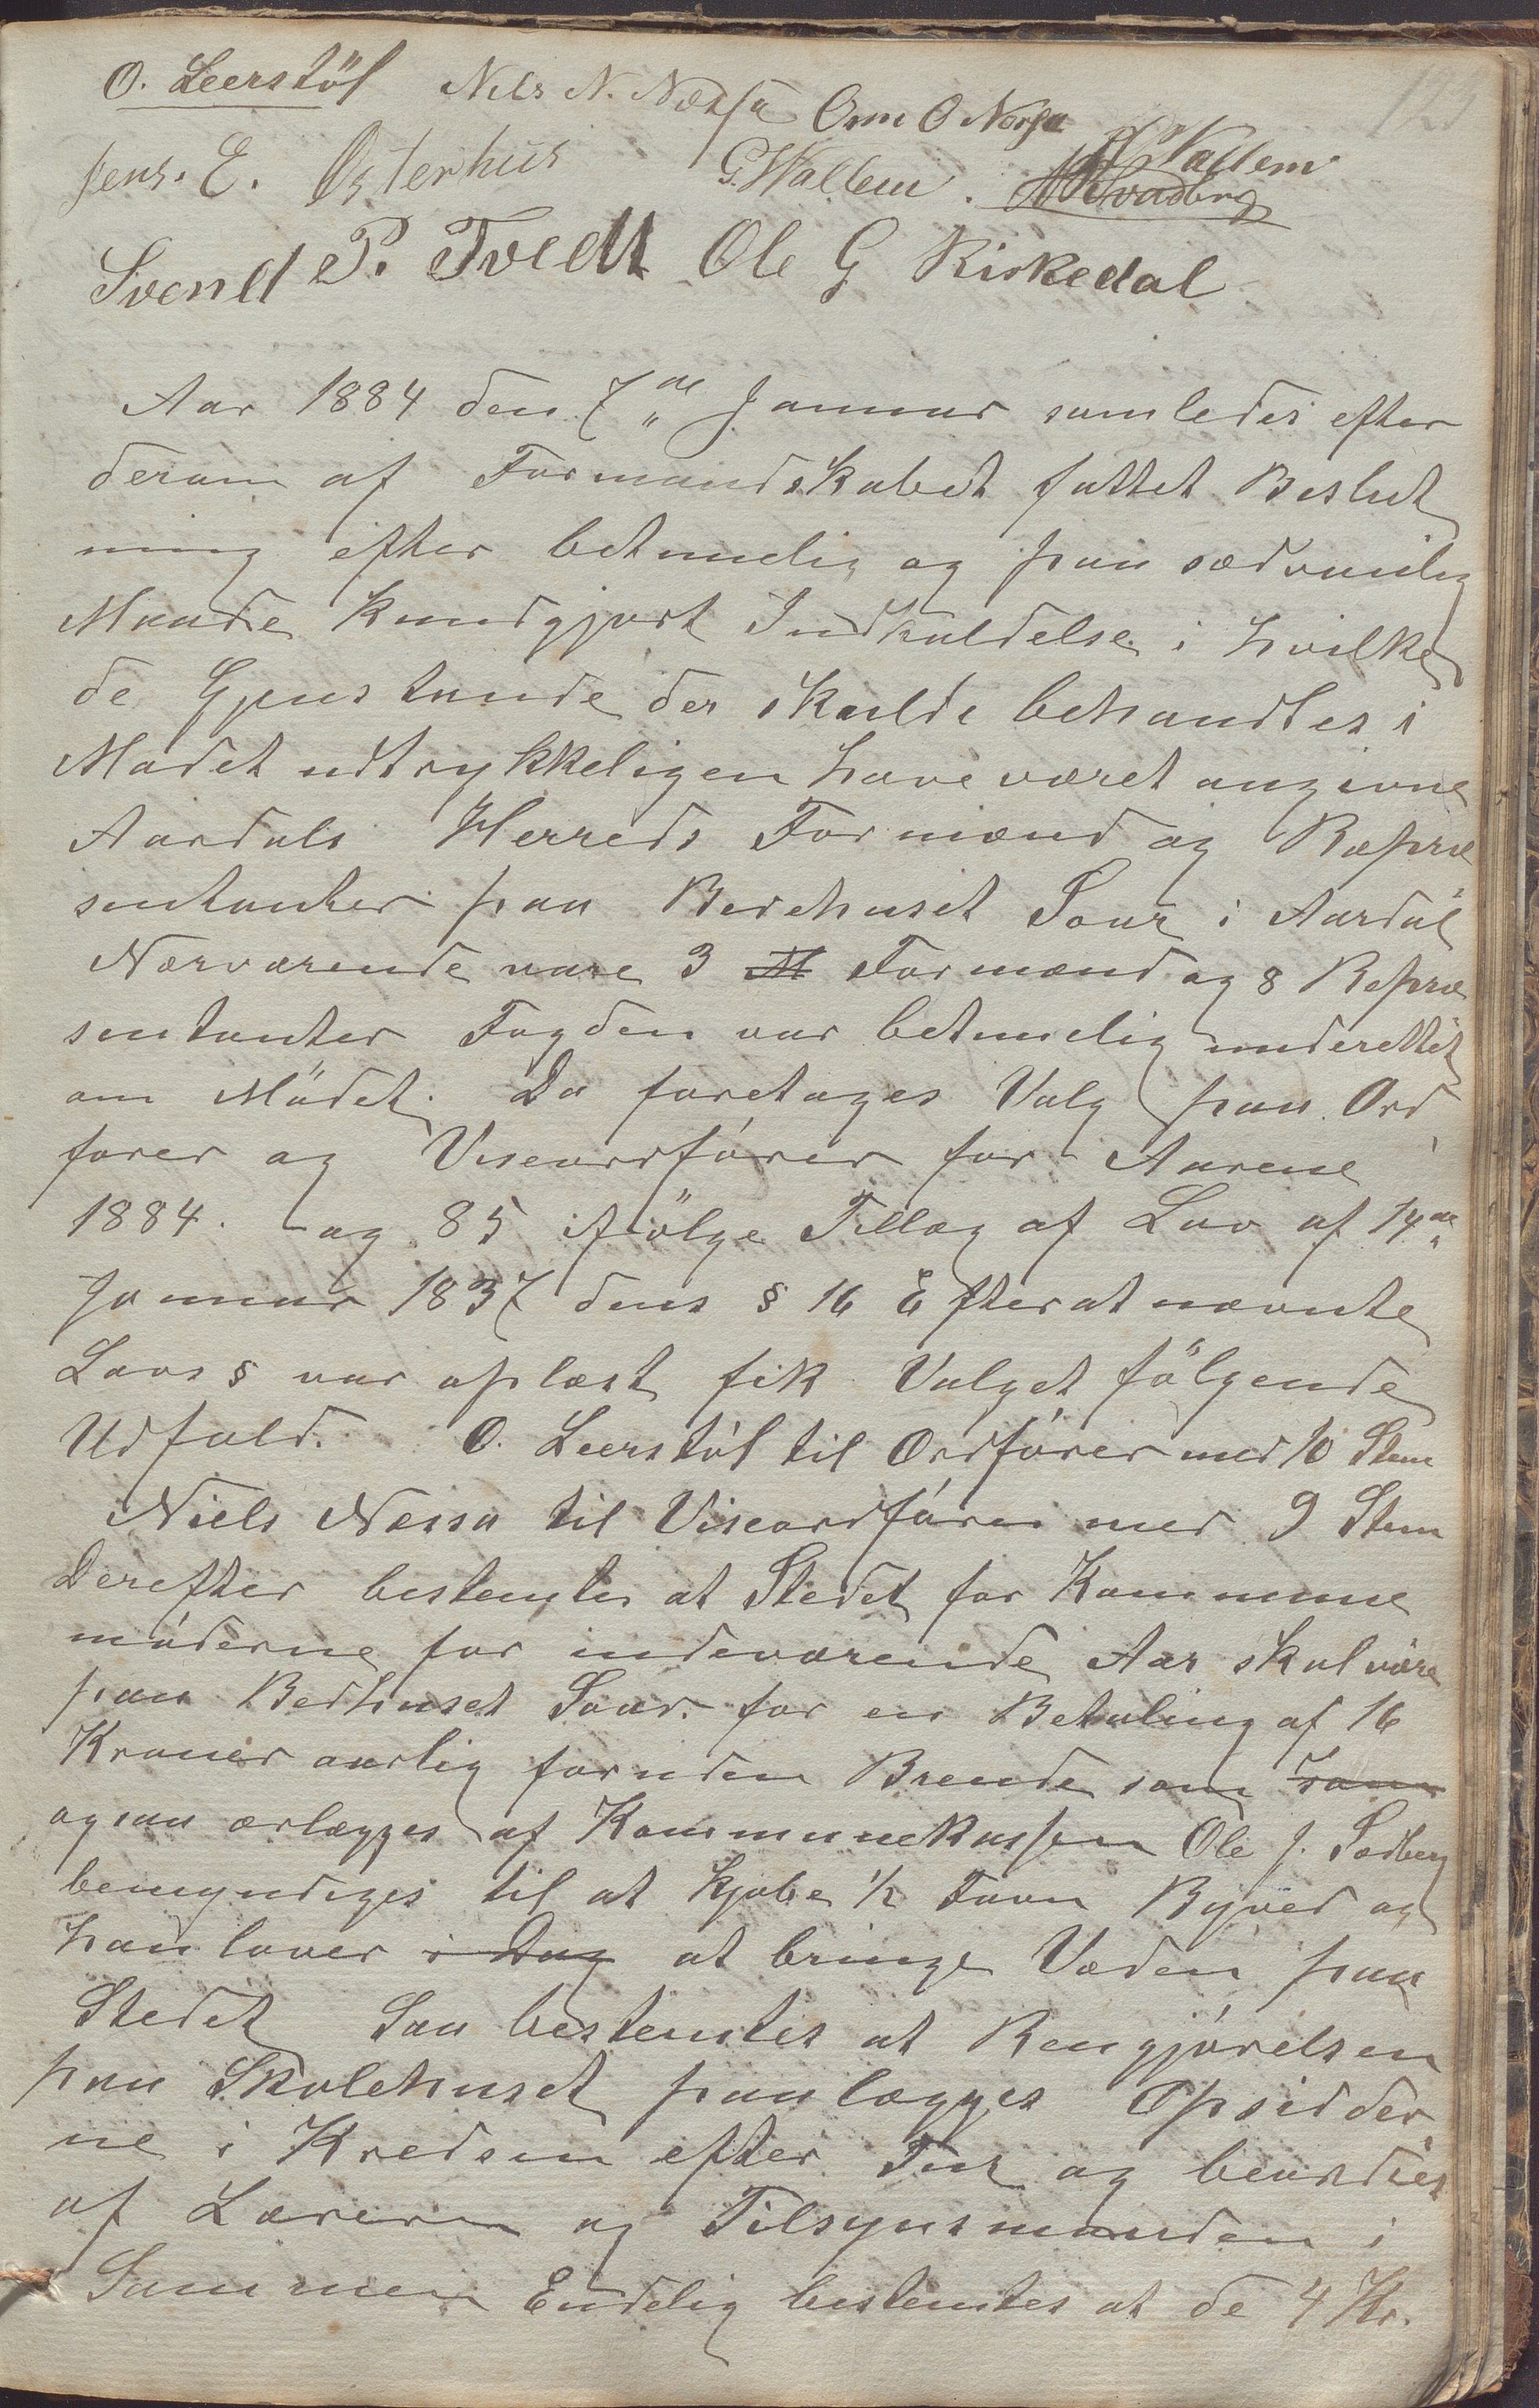 123
O. Leerstöl Nils N. Nessa Orm O Norsa
Jens. E. Østerhus G. Wallem. A Wallem
Svadberg
Svend P. Tvedt Ole G Riskedal
Aar 1884 den 7de Januar samledes efter
derom af Formandskabet fattet Beslut
ning efter betimelig og paa sædvanlig
Maade kundgjort Indkaldelse i hvilke
de Gjenstande der skulde behandles i
Mødet udtrykkeligen have været angivne
Aardals Herreds Formænd og Repræ
sentanter paa Bedehuset Soar i Aardal
Nærværende vare 3 M Formænd og 8 Repræ
sentanter Fogden var betimelig underettet
om Mödet. Da foretages Valg paa Ord
forer og Viseordförer for Aarene
1884. og 85 ifölge Tillæg af Lov af 14de
Januar 1837 dens § 16 Efterat nævnte
Lovs § var oplæst fik Valget fölgende
Udfald. O. Leerstöl til Ordförer med 10 Stem
Niels Nessa til Viseordförer med 9 Stem
Derefter bestemtes at Stedet for Kommune
möderne for indeværende Aar skal være
paa Bedhuset Soar. for en Betaling af 16
Kroner aarlig foruden Brende som som
ogsaa erlægges af Kommunekassen Ole J. Sedberg
bemyndiges til at kjøbe 1/2 Favn Byved og
han lover i Dag at bringe Veden paa
Stedet Saa bestemtes at Rengjörelsen
paa Skolehuset paalægges Opsidder
ne i Kredsen efter Tur og beordres
af Læreren og Tilsynsmanden i
Sammen Endelig bestemtes at de 4 Kr.